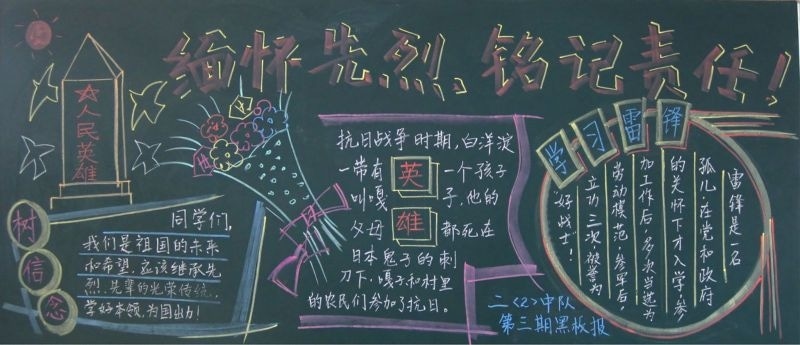 缅怀先烈、铭记责任!
☆人民英雄
树信念
同学们,
我们是祖国的未来
和希望,应该继承先
烈、先辈的光荣传统,
学好本领,为国出力!
抗日战争时期,白洋淀
一带有 英 一个孩子
叫嘎 子,他的
父母 雄 都死在
日本鬼子的刺
刀下,嘎子和村里
的农民们参加了抗日。
学习雷锋
雷锋是一名
孤儿,在党和政府
的关怀下才入学,参
加工作后,多次当选为
劳动模范,参军后,
立功三次被誉为
“好战士”!
二<2>中队
第三期黑板报